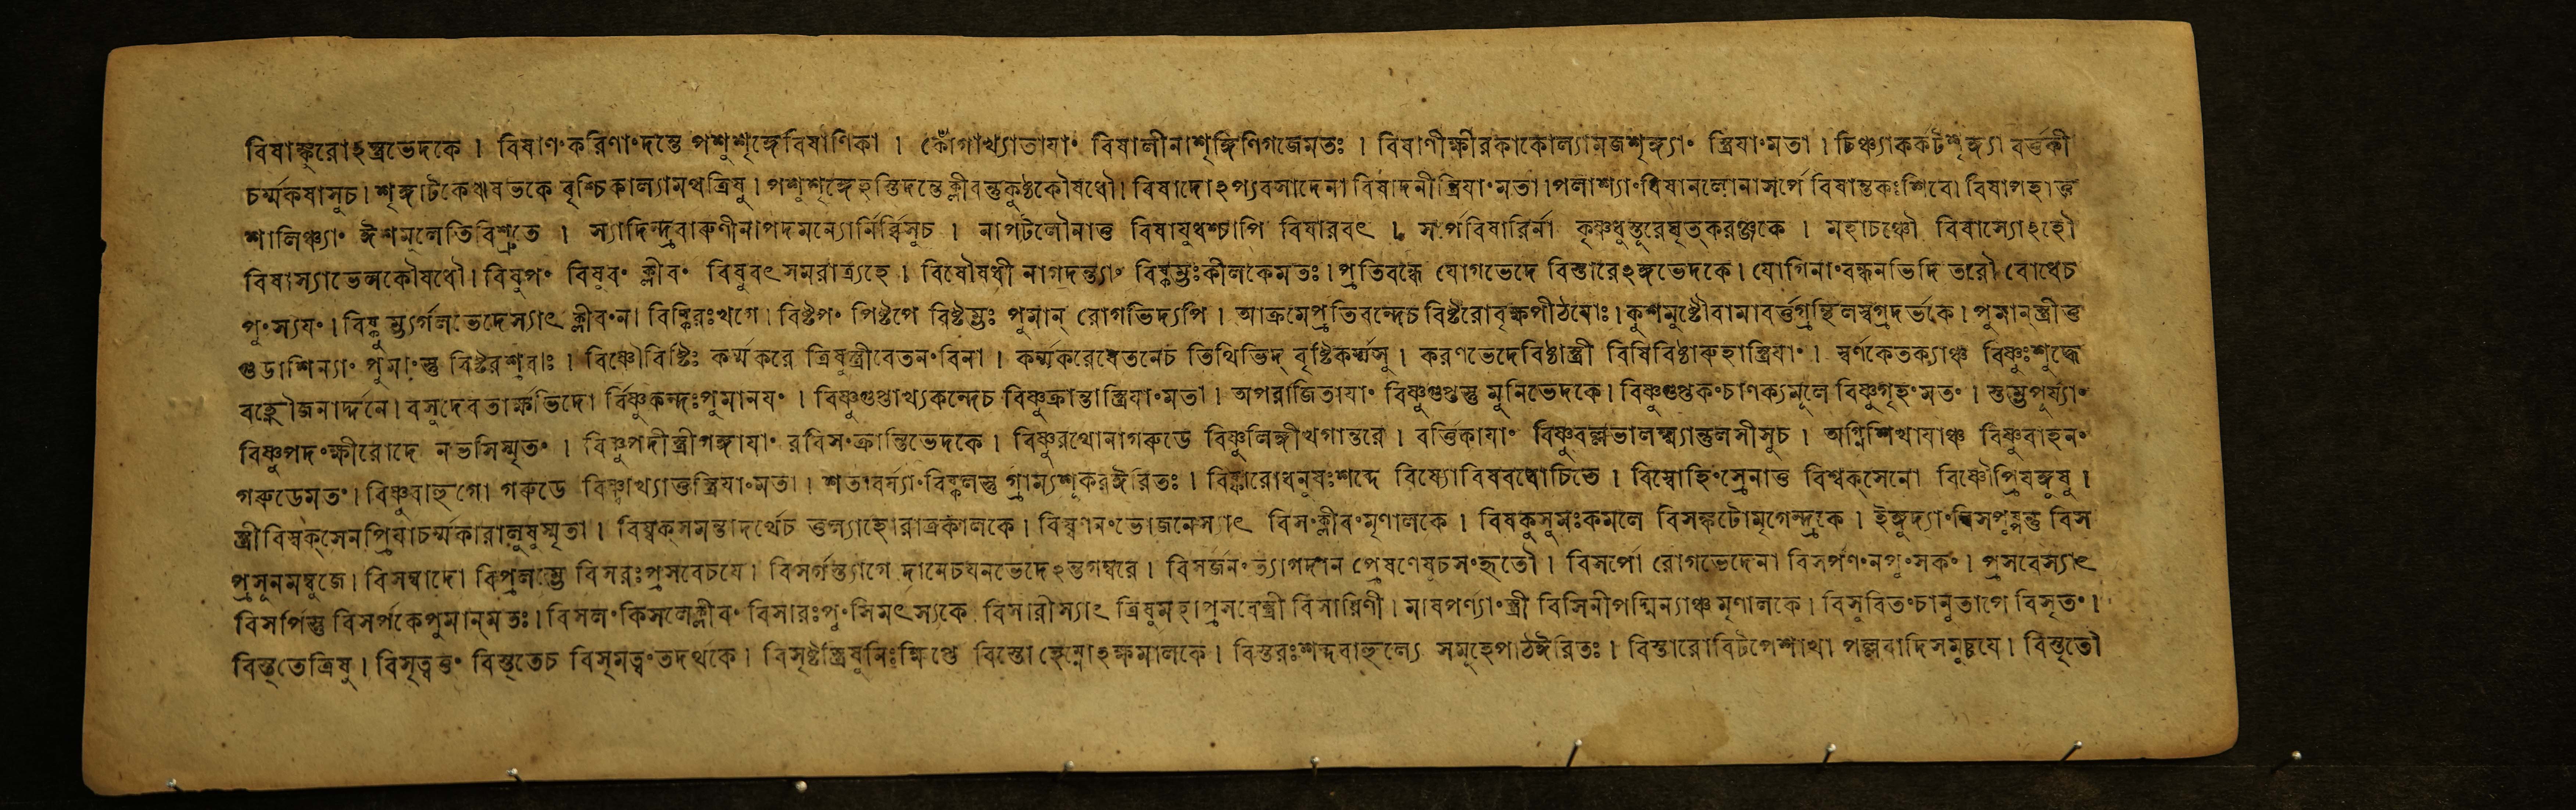 বিষাঙ্কুরোঽস্ত্রভেদকে । বিষাণং করিণাং দন্তে পশুশৃঙ্গে বিষাণিকা । বিষালীনা শৃঙ্গিণি গজে মতঃ । বিষাণী ক্ষীরকাকোল্যামজশৃঙ্গ্যাং স্ত্রিযাং মতা । চিঞ্চ্যাকর্কটশৃঙ্গ্যা বর্ত্তকী
চর্ম্মকষাসুচ । শৃঙ্গাটকে ঋষভকে বৃশ্চিকাল্যামথ ত্রিষু । পশুশৃঙ্গেঽস্তিদন্তে ক্লীবন্তু কুষ্ঠকৌষধৌ । বিষাদোঽপ্যবসাদেনা বিষাদনী স্ত্রিযাং মতা । পলাশ্যাং বিষানলোনা সর্পে বিষান্তকঃ শিবে । বিষাপহা তু
শালিঞ্চ্যাং ঈশমূলেতি বিশ্রুতে । স্যাদিন্দ্রবারুণীনাপদমন্যোর্নির্ব্বিসুচ । নাপটলৌনাত্ত বিষাযুধশ্চাপি বিষারবৎ । সর্পবিষারির্না কৃষ্ণধুস্তূরে ঘৃতকরঞ্জকে । মহাচঞ্চৌ বিষাস্যোঽহৌ
বিষাস্যা ভেলকৌষধৌ । বিষুপং বিষুবং ক্লীবং বিষুবৎ সমরাত্র্যহে । বিষৌষধী নাগদন্ত্যাং বিষ্কম্ভঃ কীলকে মতঃ । প্রতিবন্ধে যোগভেদে বিস্তারেঽঙ্গভেদকে । যোগিনাং বন্ধনভিদি তরৌ বোধেচ
পুংস্যযং । বিষ্কম্ভ্যর্গলভেদে স্যাৎ ক্লীবংন । বিষ্কিরঃ খগে । বিষ্টপং পিষ্টপে বিষ্টম্ভঃ পুমান্ রোগভিদ্যপি । আক্রমে প্রতিবন্দেচ বিষ্টরো বৃক্ষপীঠযোঃ । কুশমুষ্টৌ বামাবর্ত্তগ্রন্থিলম্বগ্রদর্ভকে । পুমান্ স্ত্রী তু
গুডাশিন্যাং পুমাংস্তু বিষ্টরশ্রবাঃ । বিষ্ণৌ বিষ্টিঃ কর্ম্মকরে ত্রিষু স্ত্রী বেতনং বিনা । কর্ম্মকরে বেতনেচ তিথিভিদ্ বৃষ্টিকর্ম্মসু । করণভেদে বিষ্ঠা স্ত্রী বিষি বিষ্ঠারুহা স্ত্রিযাং । স্বর্ণকেতক্যাঞ্চ বিষ্ণুঃ শুদ্ধে
বহ্নৌ জনার্দ্দনে । বসুদেবতার্ক্ষভিদো র্বিষ্ণুকন্দঃ পুমানযং । বিষ্ণুগুপ্তাখ্যকন্দেচ বিষ্ণুক্রান্তা স্ত্রিযাং মতা । অপরাজিতাযাং বিষ্ণুগুপ্তস্তু মুনিভেদকে । বিষ্ণুগুপ্তকং চাণক্যমূলে বিষ্ণুগৃহং মতং । স্তম্ভপুর্য্যাং
বিষ্ণুপদং ক্ষীরোদে নভসি স্মৃতং । বিষ্ণুপদী স্ত্রী গঙ্গাযাং রবিসংক্রান্তিভেদকে । বিষ্ণুরথোনা গরুডে বিষ্ণুলিঙ্গী খগান্তরে । বর্ত্তিকাযাং বিষ্ণুবল্লভা লক্ষ্ম্যান্তুলসীসুচ । অগ্নিশিখাযাঞ্চ বিষ্ণুবাহনং
গরুডে মতং । বিষ্ণুবাহুগো গরুডে বিষ্ণ্বাখ্যাত্তু স্ত্রিযাং মতা । শতাবর্য্যাং বিষ্কলস্তু গ্রাম্যশূকর ঈরিতঃ । বিষ্ফারো ধনুষঃ শব্দে বিষ্যো বিষবধোচিতে । বিষ্বোহিংস্রেনাত্ত বিশ্বক্সেনো বিষ্ণৌ প্রিযঙ্গুষু ।
স্ত্রী বিস্বক্সেনপ্রিযা চর্ম্মকারালুষু স্মৃতা । বিষ্বক্ সমন্তাদর্থেচ । বিষ্বাণং ভোজনে স্যাৎ বিসং ক্লীবং মৃণালকে । বিষকুসুমঃ কমলে বিসঙ্কটো মৃগেন্দ্রকে । ইঙ্গুদ্যাং বিসপুষ্পন্তু বিস
প্রসূনমম্বুজে । বিসম্বাদো বিপ্রলম্ভে বিসরঃ প্রসবেচযে । বিসর্গস্ত্যাগে দানেচযনভেদেঽস্তগম্বরে । বিসর্জনং ত্যাগদান প্রেষণেষুচ সংহৃতৌ । বিসর্পো রোগভেদেনা বিসর্পণং নপুংসকং । প্রসবে স্যাৎ
বিসর্পিস্তু বিসর্পকে পুমান্ মতঃ । বিসলং কিসলে ক্লীবং বিসারঃ পুংসি মৎস্যকে বিসারী স্যাৎ ত্রিষু মহাপ্রসবে স্ত্রী বিসারিণী । মাষপর্ণ্যাং স্ত্রী বিসিনী পদ্মিন্যাঞ্চ মৃণালকে । বিসূবিতং চানুতাপে বিসৃতং ।
বিস্তৃতে ত্রিষু । বিসৃত্বত্তং বিস্তৃতেচ বিসৃমত্বং তদর্থকে । বিসৃষ্টস্ত্রিষু নিঃক্ষিপ্তে বিস্তো হেম্নোঽক্ষমালকে । বিস্তরঃ শব্দবাহুল্যে সমূহে পাঠ ঈরিতঃ । বিস্তারো বিটপে শাখা পল্লবাদি সমুচ্চযে । বিস্তৃতৌ